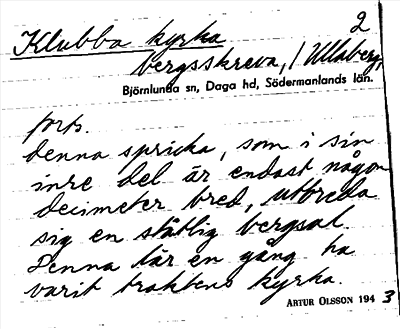 Klubba kyrka 2
bergsskreva, / Ullaberg,
Björnlunda sn, Daga hd, Södermanlands län.
forts.
denna spricka, som i sin
inre del är endast någon
decimeter bred, utbreda
sig en ståtlig bergsal.
Denna lär en gång ha
varit traktens kyrka.
ARTUR OLSSON 1943